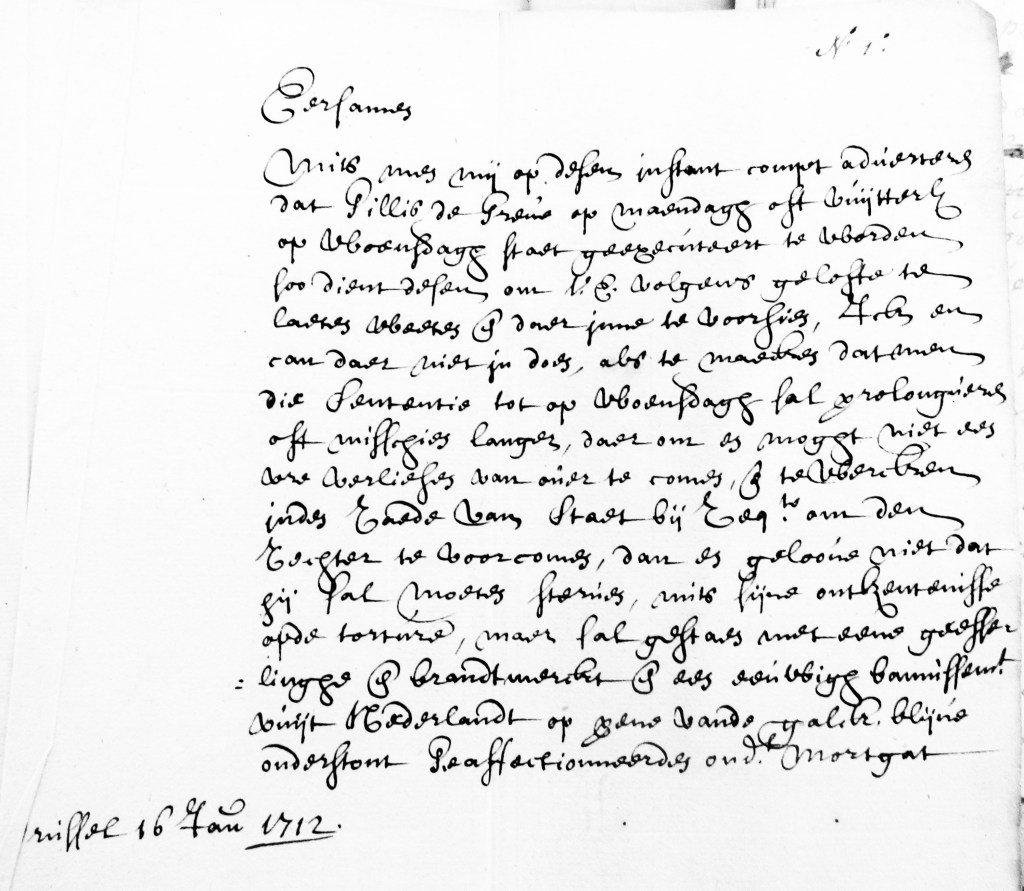 N.º 1.º
Eersamen
Mits men mij op desen instant compt adverteren
dat Gillis de Greve op maendagh oft vuijtterl.
op Woensdagh staet geexecuteert te worden
soo dient desen om U.E. volgens gelofte te
laeten weeten en daer inne te voorsien, Ick en
can daer niet in doen, als te maecken datmen
die Sententie tot op woensdagh sal prolongueren
oft misschien langer, daer om en moght niet een
ure verliesen van over te comen, en te wercken
inden Raede van Staet bij Req.te om den
Rechter te voorcomen, dan en geloove niet dat
hij sal moeten sterven, mits sijne ontkentenisse
opde torture, maer sal gestaen met eene geesse
linghe en brandtmerckt en een eeuwigh bannissem.t
vuijt Nederlandt op pene vande galeke. blijve
onderstont Geaffectionneerden ond.t Mortgat
russel 16 Jan 1712.